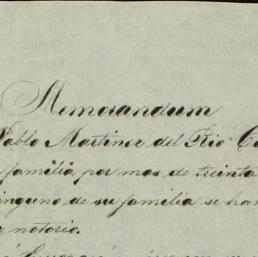 Memorandum
Pablo Martinez del Rio
familia por mas de treinta
ninguno de su familia se han
notorio.